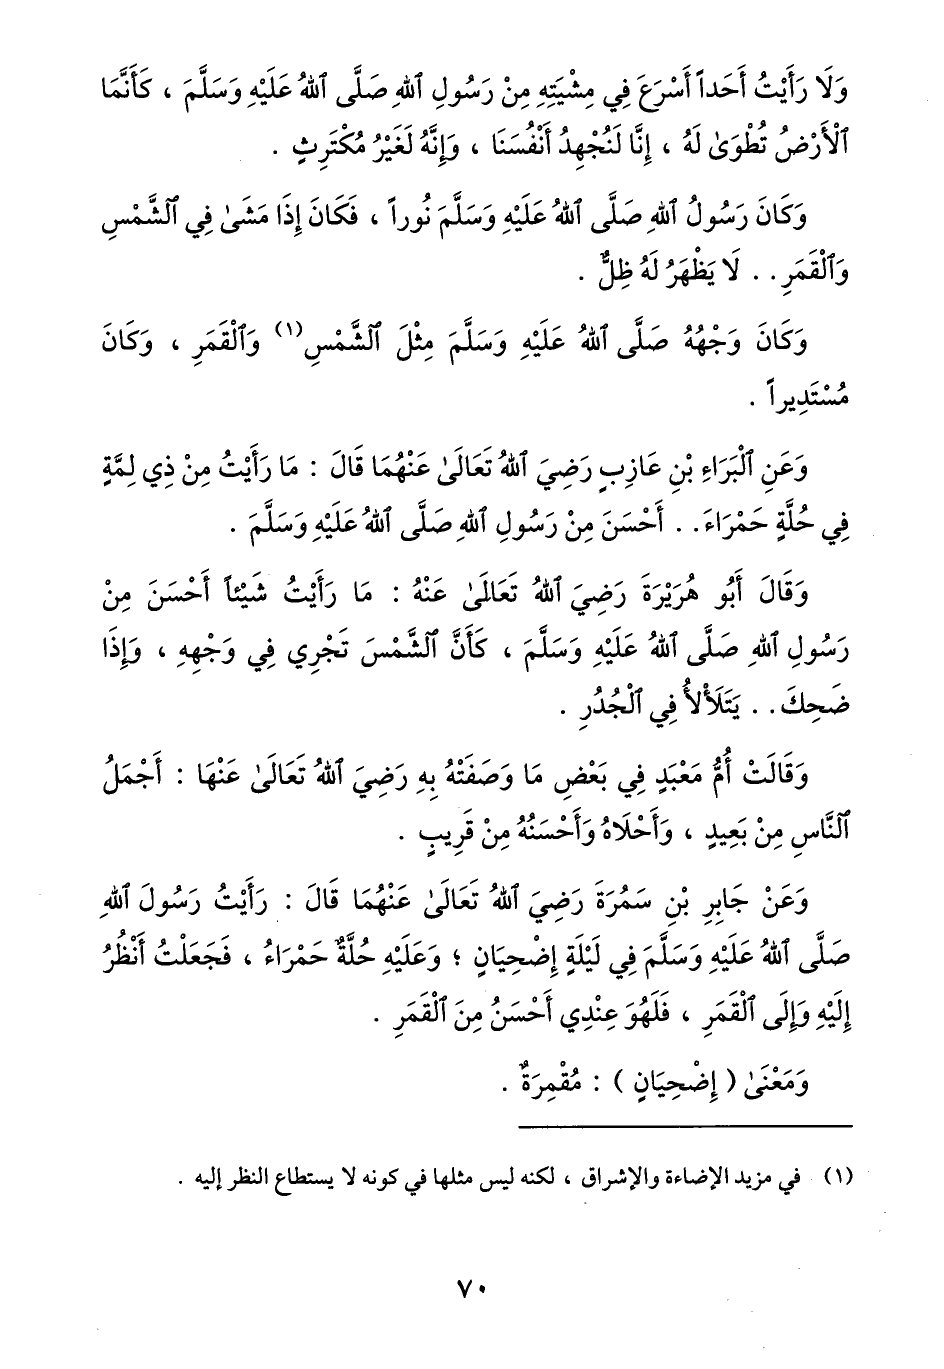 وَلَا رَأَيْتُ أَحَداً أَسْرَعَ فِي مِشْيَتِهِ مِنْ رَسُولِ ٱللهِ صَلَّى ٱللهُ عَلَيْهِ وَسَلَّمَ ، كَأَنَّمَا
ٱلْأَرْضُ تُطْوَىٰ لَهُ ، إِنَّا لَنُجْهِدُ أَنْفُسَنَا ، وَإِنَّهُ لَغَيْرُ مُكْتَرِثٍ .
وَكَانَ رَسُولُ ٱللهِ صَلَّى ٱللهُ عَلَيْهِ وَسَلَّمَ نُوراً ، فَكَانَ إِذَا مَشَىٰ فِي ٱلشَّمْسِ
وَٱلْقَمَرِ . . لَا يَظْهَرُ لَهُ ظِلٌّ .
وَكَانَ وَجْهُهُ صَلَّى ٱللهُ عَلَيْهِ وَسَلَّمَ مِثْلَ ٱلشَّمْسِ(١) وَٱلْقَمَرِ ، وَكَانَ
مُسْتَدِيراً .
وَعَنِ ٱلْبَرَاءِ بْنِ عَازِبٍ رَضِيَ ٱللهُ تَعَالَىٰ عَنْهُمَا قَالَ : مَا رَأَيْتُ مِنْ ذِي لِمَّةٍ
فِي حُلَّةٍ حَمْرَاءَ . . أَحْسَنَ مِنْ رَسُولِ ٱللهِ صَلَّى ٱللهُ عَلَيْهِ وَسَلَّمَ .
وَقَالَ أَبُو هُرَيْرَةَ رَضِيَ ٱللهُ تَعَالَىٰ عَنْهُ : مَا رَأَيْتُ شَيْئاً أَحْسَنَ مِنْ
رَسُولِ ٱللهِ صَلَّى ٱللهُ عَلَيْهِ وَسَلَّمَ ، كَأَنَّ ٱلشَّمْسَ تَجْرِي فِي وَجْهِهِ ، وَإِذَا
ضَحِكَ . . يَتَلَأْلَأُ فِي ٱلْجُدُرِ .
وَقَالَتْ أُمُّ مَعْبَدٍ فِي بَعْضِ مَا وَصَفَتْهُ بِهِ رَضِيَ ٱللهُ تَعَالَىٰ عَنْهَا : أَجْمَلُ
ٱلنَّاسِ مِنْ بَعِيدٍ ، وَأَحْلَاهُ وَأَحْسَنُهُ مِنْ قَرِيبٍ .
وَعَنْ جَابِرِ بْنِ سَمُرَةَ رَضِيَ ٱللهُ تَعَالَىٰ عَنْهُمَا قَالَ : رَأَيْتُ رَسُولَ ٱللهِ
صَلَّى ٱللهُ عَلَيْهِ وَسَلَّمَ فِي لَيْلَةٍ إِضْحِيَانٍ ؛ وَعَلَيْهِ حُلَّةٌ حَمْرَاءُ ، فَجَعَلْتُ أَنْظُرُ
إِلَيْهِ وَإِلَى ٱلْقَمَرِ ، فَلَهُوَ عِنْدِي أَحْسَنُ مِنَ ٱلْقَمَرِ .
وَمَعْنَىٰ ( إِضْحِيَانٍ ) : مُقْمِرَةٌ .
(١) في مزيد الإضاءة والإشراق ، لكنه ليس مثلها في كونه لا يستطاع النظر إليه .
٧٠